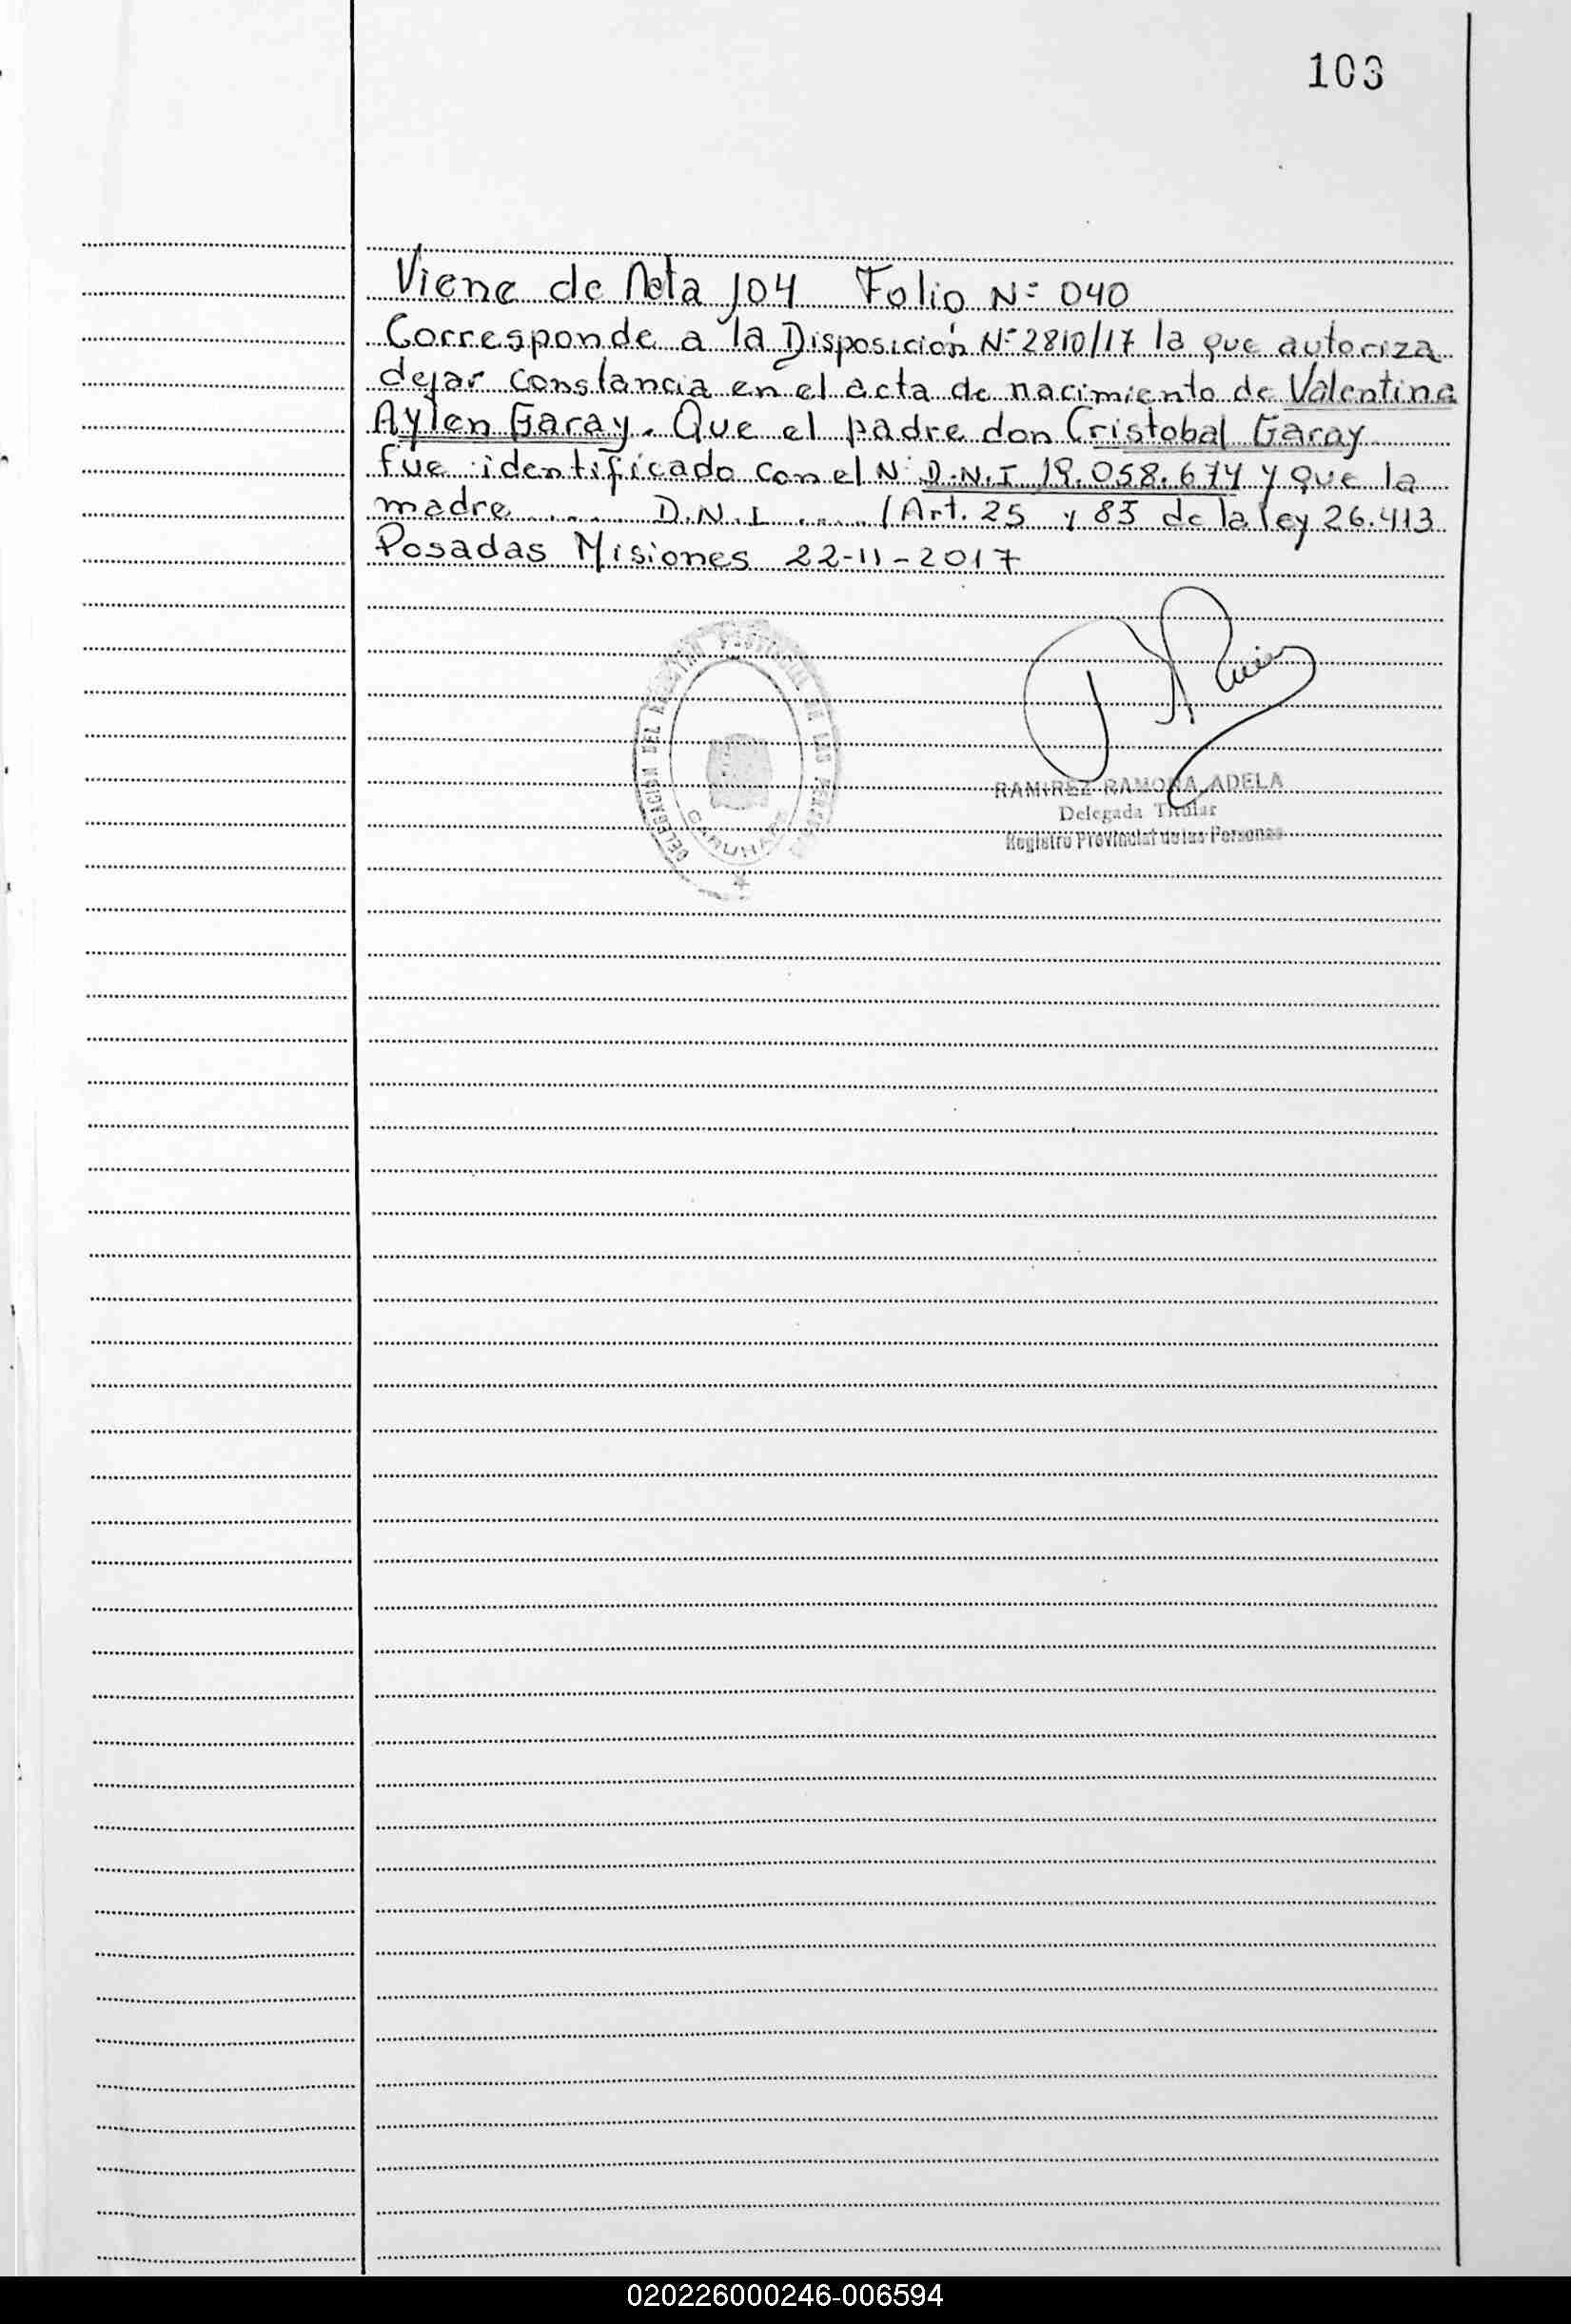 103
Viene de Acta 104 Folio Nº 040
Corresponde a la Disposición Nº 2810/17 la que autoriza
dejar constancia en el acta de nacimiento de Valentina
Aylen Garay. Que el padre don Cristobal Garay
fue identificado con el Nº D.N.I 19.058.674 y que la
madre ..... D.N.I ..... (Art. 25 y 85 de la ley 26.413
Posadas Misiones 22-11-2017
DELEGACIÓN DEL REGISTRO PROVINCIAL DE LAS PERSONAS
GARUHAPE
RAMIREZ RAMONA ADELA
Delegada Titular
Registro Provincial de las Personas
020226000246-006594